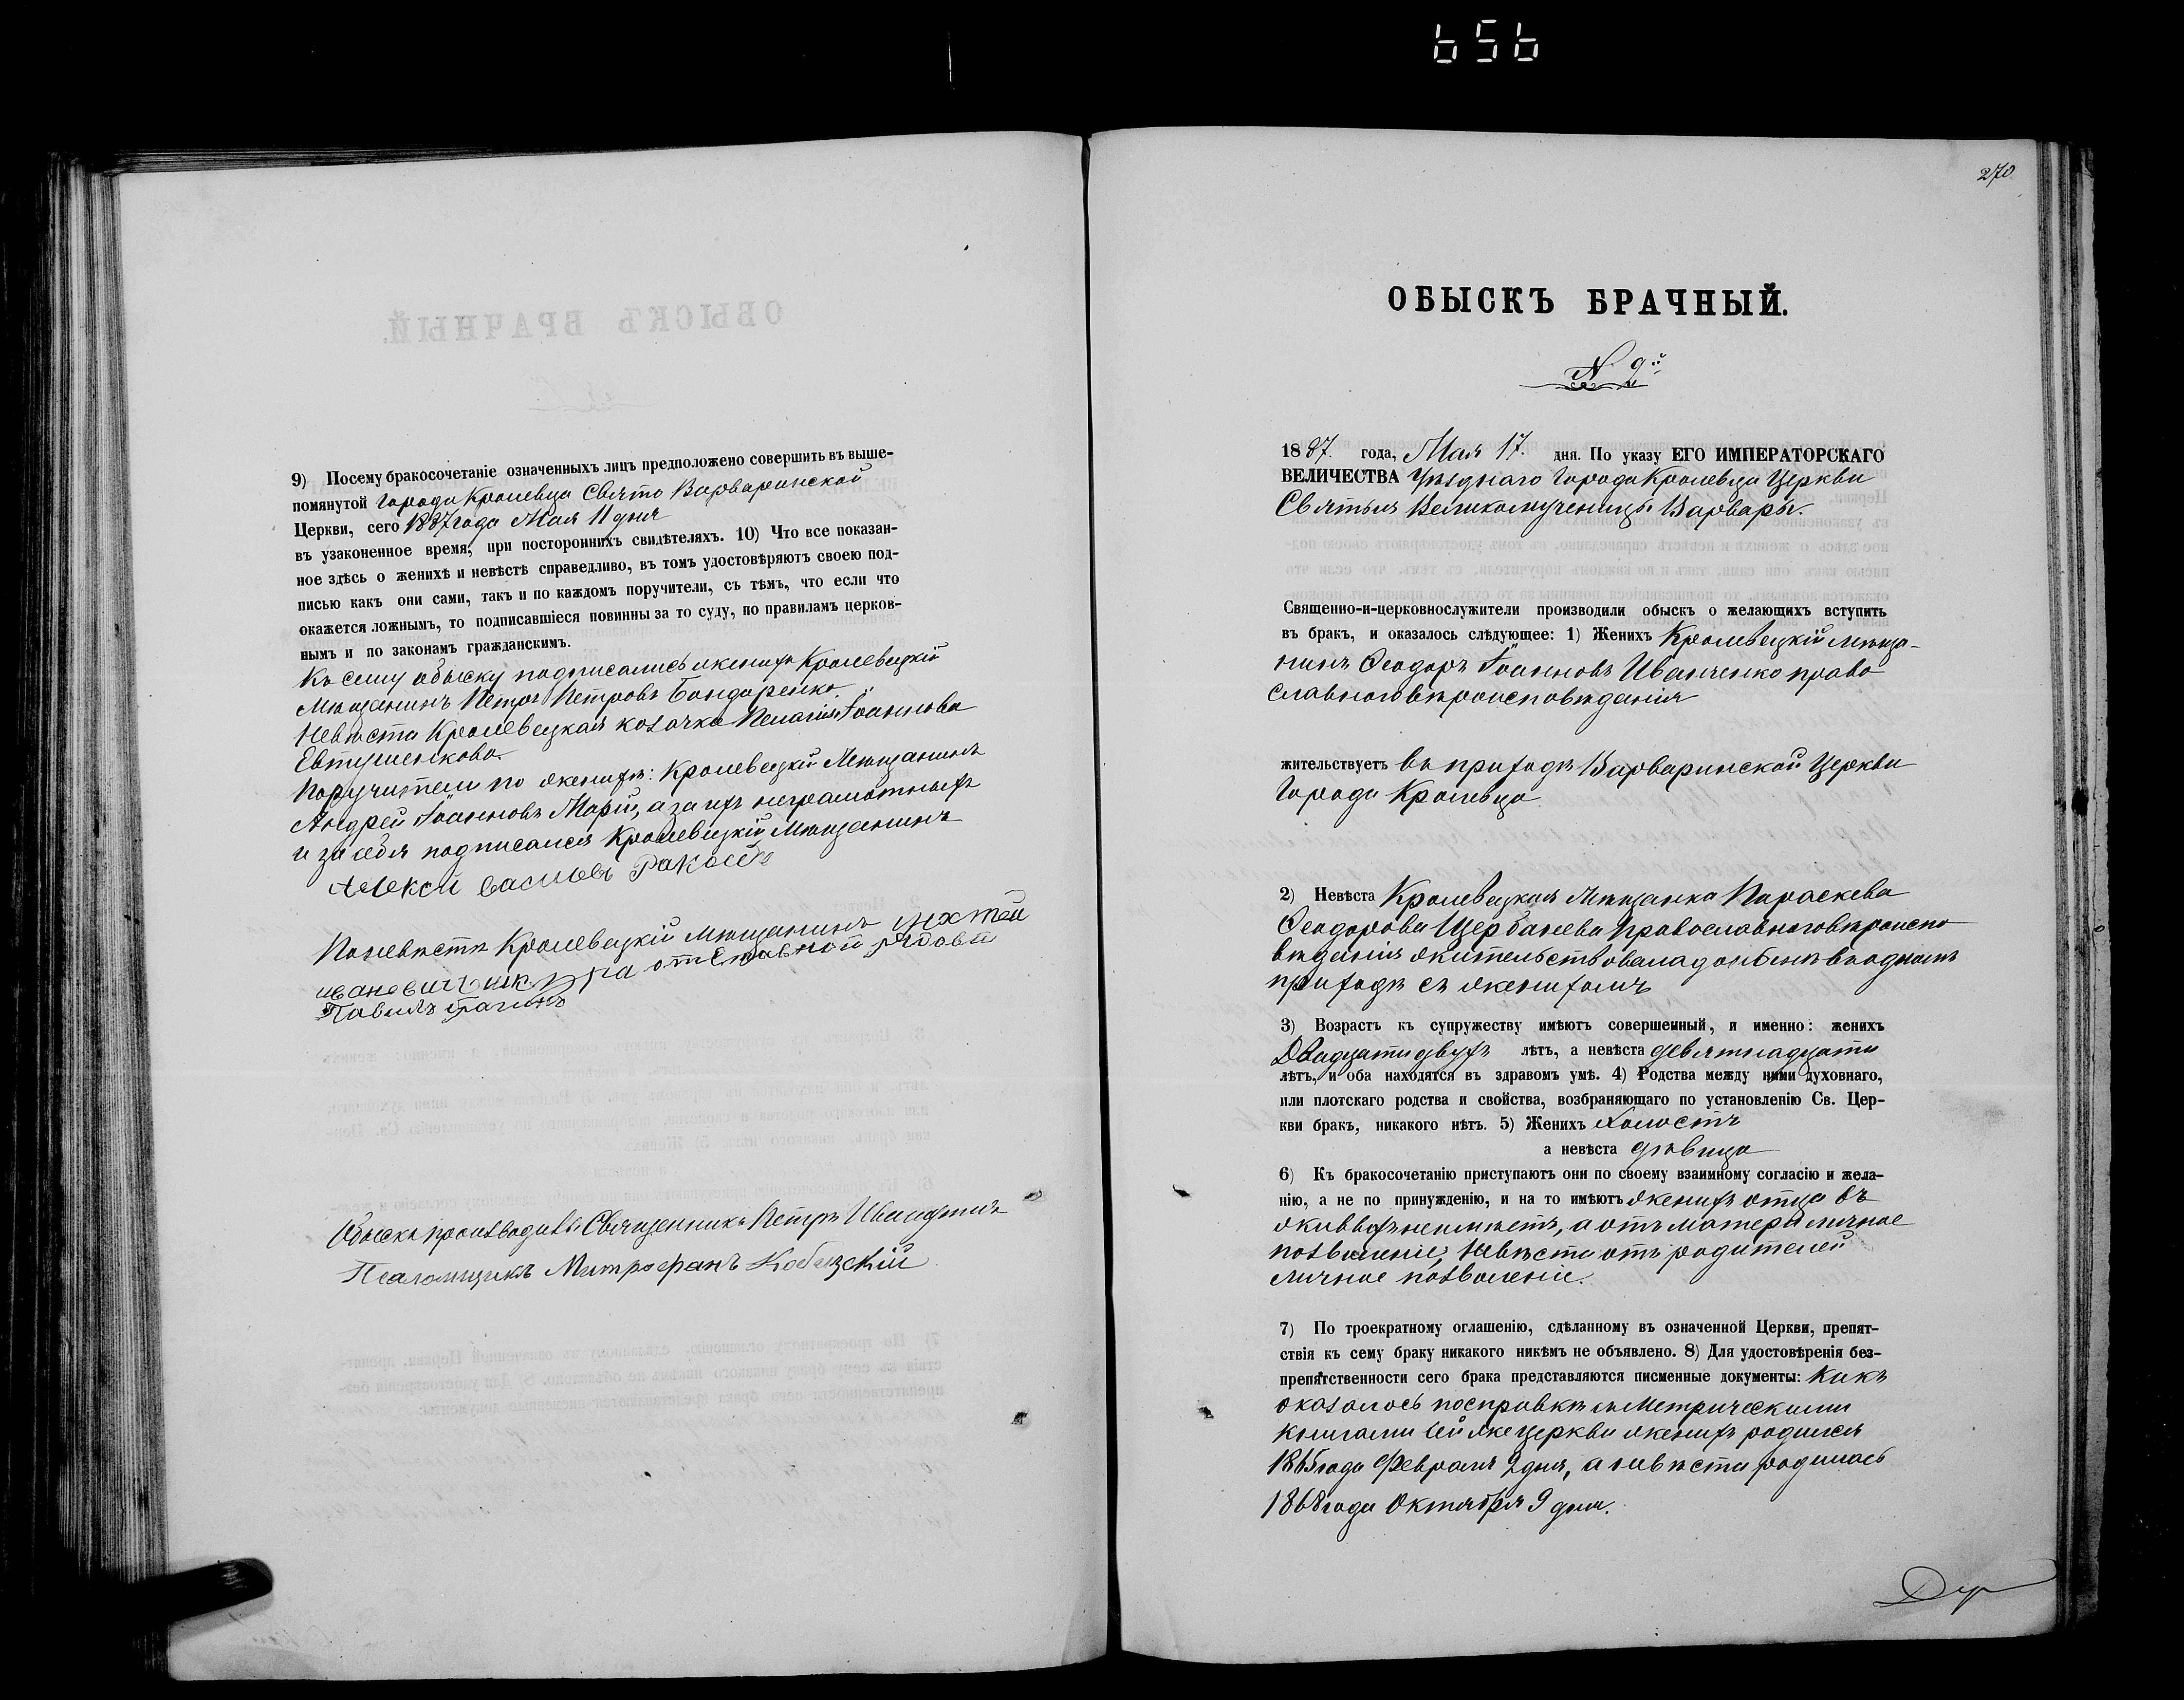 656
9) Посему бракосочетаніе означенныхъ лицъ предположено совершить въ выше-
помянутой города Кролевца Свято Варваринской
Церкви, сего 1887 года Мая 11 дня
въ узаконенное время, при постороннихъ свидѣтеляхъ. 10) Что все показан-
ное здѣсь о женихѣ и невѣстѣ справедливо, въ томъ удостовѣряютъ своею под-
писью какъ они сами, такъ и по каждомъ поручители, съ тѣмъ, что если что
окажется ложнымъ, то подписавшіеся повинны за то суду, по правиламъ церков-
нымъ и по законамъ гражданскимъ.
Къ сему обыску подписались женихъ Кролевецкій
Мѣщанинъ Петръ Петровъ Бондаренко.
Невѣста Кролевецкая козачка Пелагія Іоаннова
Евтушенкова
Поручители по женихѣ: Кролевецкій Мѣщанинъ
Андрей Іоанновъ Марій, а за ихъ неграмотныхъ
и за себя подписался Кролевецкій Мѣщанинъ
Алексй василевъ
По невѣстѣ Кролевецкій мѣщанинъ
ивановичъ отставной рядовй
Павилъ
Обыскъ производилъ Священникъ Петръ
Псаломщикъ Митрофанъ Кобызскій
270
ОБЫСКЪ БРАЧНЫЙ.
N 9й
1887. года, Мая 17. дня. По указу ЕГО ИМПЕРАТОРСКАГО
ВЕЛИЧЕСТВА Уѣзднаго Города Кролевца Церкви
Святыя Великомученицы Варвары.
Священно-и-церковнослужители производили обыскъ о желающихъ вступить
въ бракъ, и оказалось слѣдующее: 1) Женихъ Кролевецкій мѣща-
нинъ Ѳеодоръ Іоанновъ Иванченко право
славнаго вѣроисповѣданія
жительствуетъ въ приходѣ Варваринской Церкви
Города Кролевца
2) Невѣста Кролевецкая Мѣщанка Параскева
Ѳеодорова Щербанева Православнаго вѣроиспо
вѣданія жительствовала донынѣ въ одномъ
приходѣ съ женихомъ
3) Возрастъ къ супружеству имѣютъ совершенный, и именно: женихъ
Двадцати двухъ лѣтъ, а невѣста девятнадцати
лѣтъ, и оба находятся въ здравомъ умѣ. 4) Родства между ними духовнаго,
или плотскаго родства и свойства, возбраняющаго по установленію Св. Цер-
кви бракъ, никакого нѣтъ. 5) Женихъ Холостъ
а невѣста дѣвица
6) Къ бракосочетанію приступаютъ они по своему взаимному согласію и жела-
нію, а не по принужденію, и на то имѣютъ женихъ отца въ
живыхъ неимѣетъ, а отъ матери личное
позволеніе, Невѣста отъ родителей
личное позволеніе.
7) По троекратному оглашенію, сдѣланному въ означенной Церкви, препят-
ствія къ сему браку никакого никѣмъ не объявлено. 8) Для удостовѣренія без-
препятственности сего брака представляются писменные документы: Какъ
оказалось посправкѣ съ Метрическими
книгами сей же церкви женихъ родился
1865 года Февраля 2 дня, а невѣста родилась
1868 года Октября 9 дня.